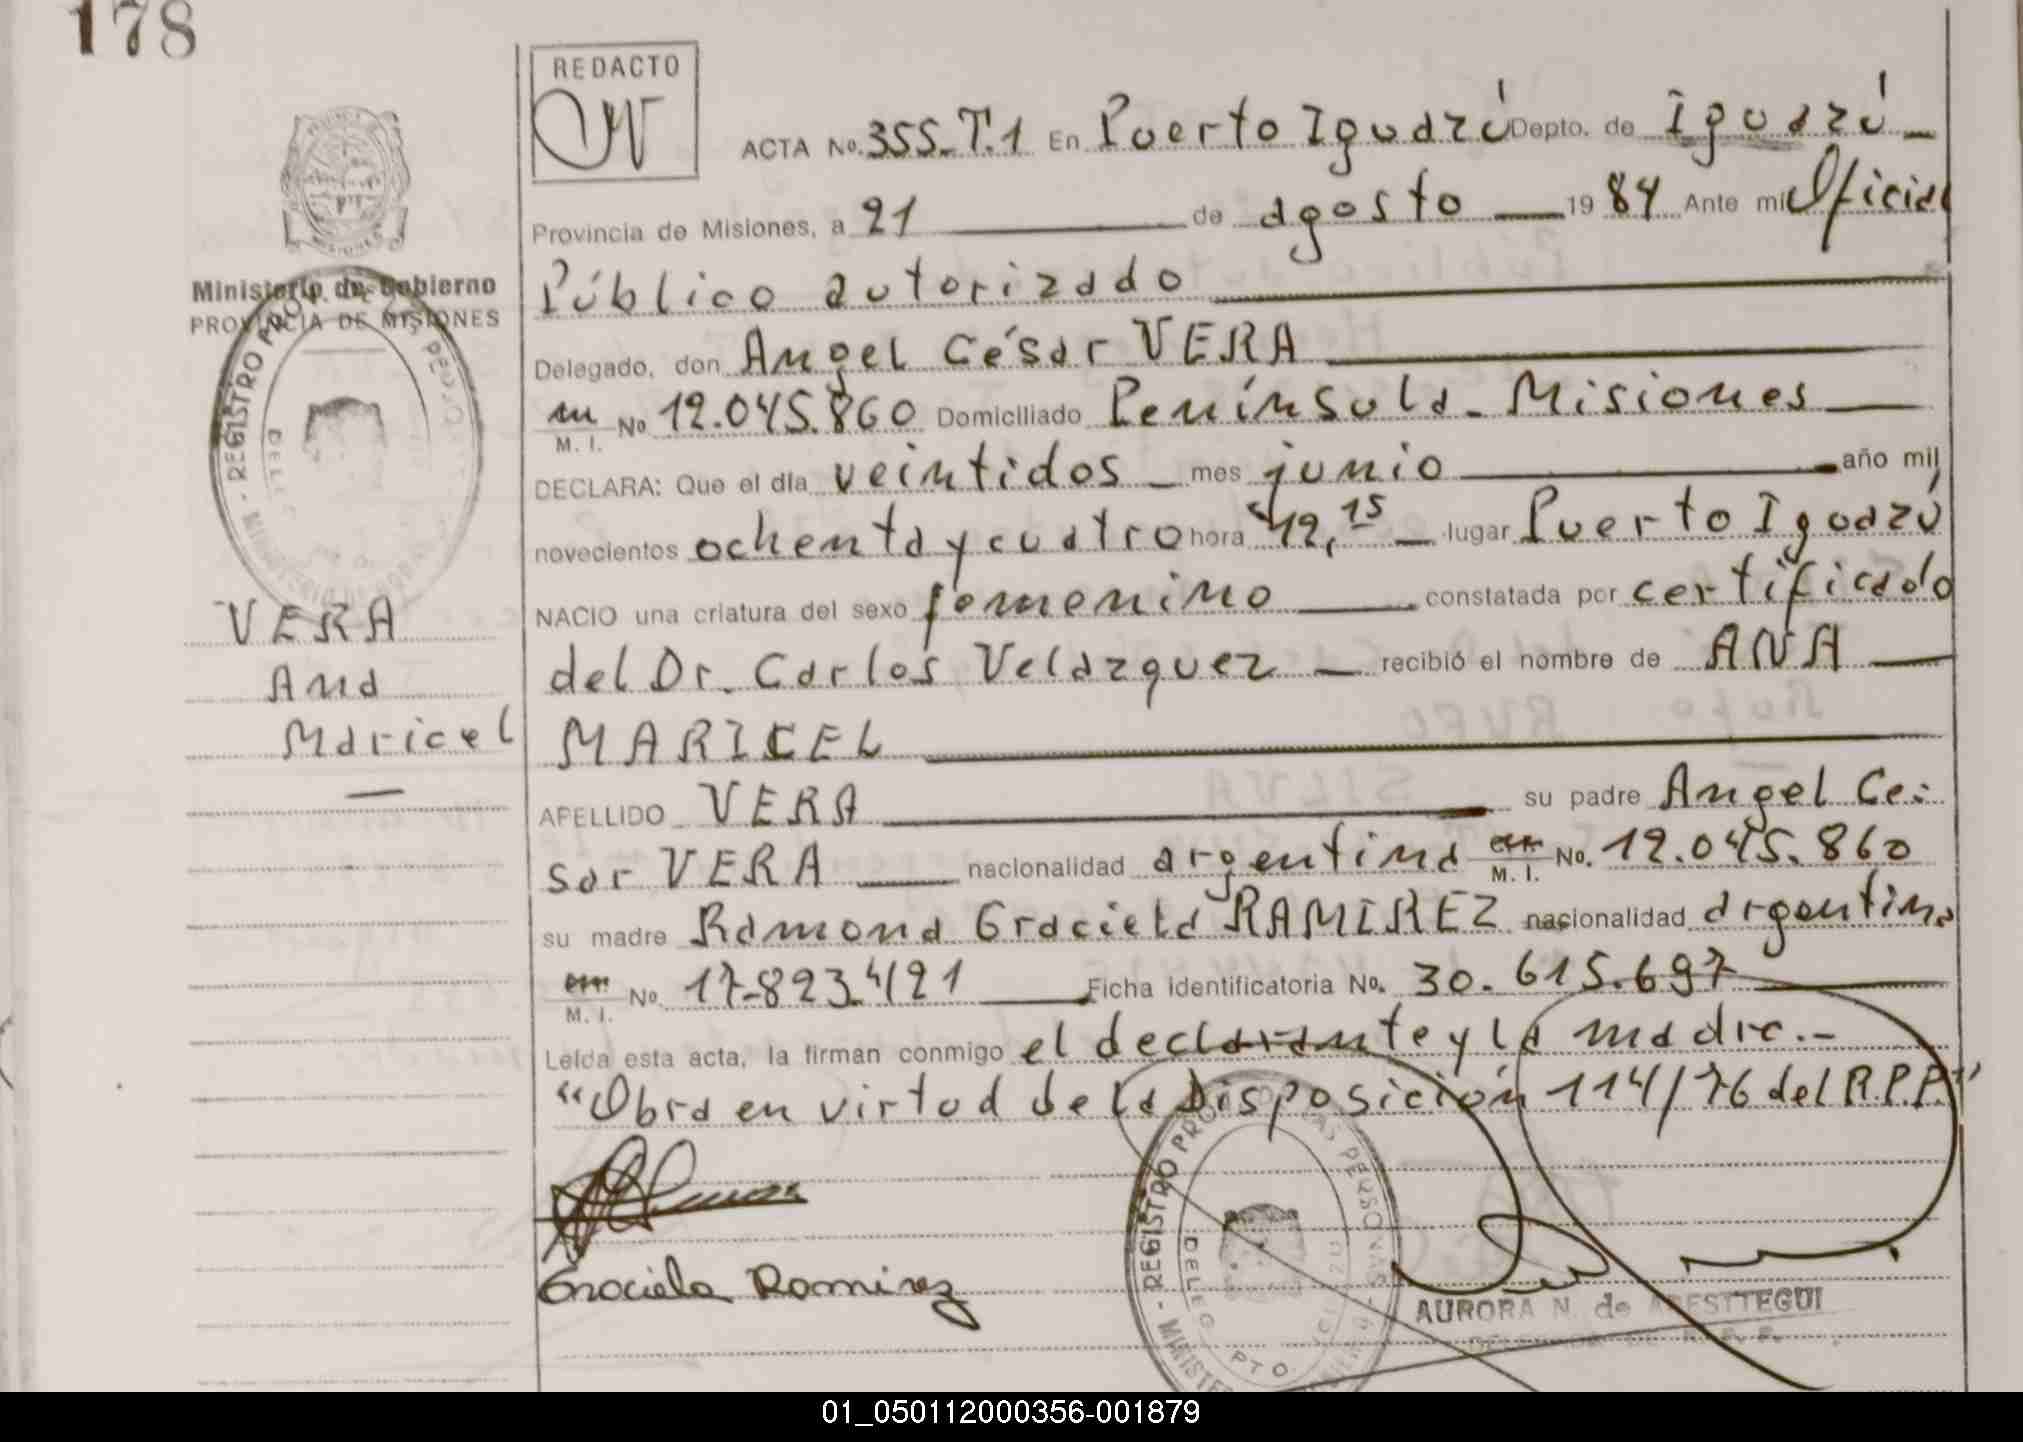 178
REDACTO
ACTA No. 355-T.1 En Puerto Iguazú Depto. de Iguazú
Provincia de Misiones, a 21 de agosto 1984 Ante mi Oficial
Público autorizado
Ministerio de Gobierno
PROVINCIA DE MISIONES
Delegado, don Angel César VERA
M. I. No 12.045.860 Domiciliado Península - Misiones
DECLARA: Que el día veintidos mes junio año mil
novecientos ochenta y cuatro hora 12,15 lugar Puerto Iguazú
NACIO una criatura del sexo femenino constatada por certificado
del Dr. Carlos Velazquez recibió el nombre de ANA
MARICEL
VERA
Ana
Maricel
APELLIDO VERA su padre Angel Cé-
sar VERA nacionalidad argentina M. I. No. 12.045.860
su madre Ramona Graciela RAMIREZ nacionalidad argentina
M. I. No. 17.823.421 Ficha identificatoria No. 30.615.697
Leída esta acta, la firman conmigo el declarante y la madre.-
"Obra en virtud de la Disposición 114/76 del R.P.P."
Graciela Ramirez
REGISTRO
AURORA N. de ARESTTEGUI
01_050112000356-001879